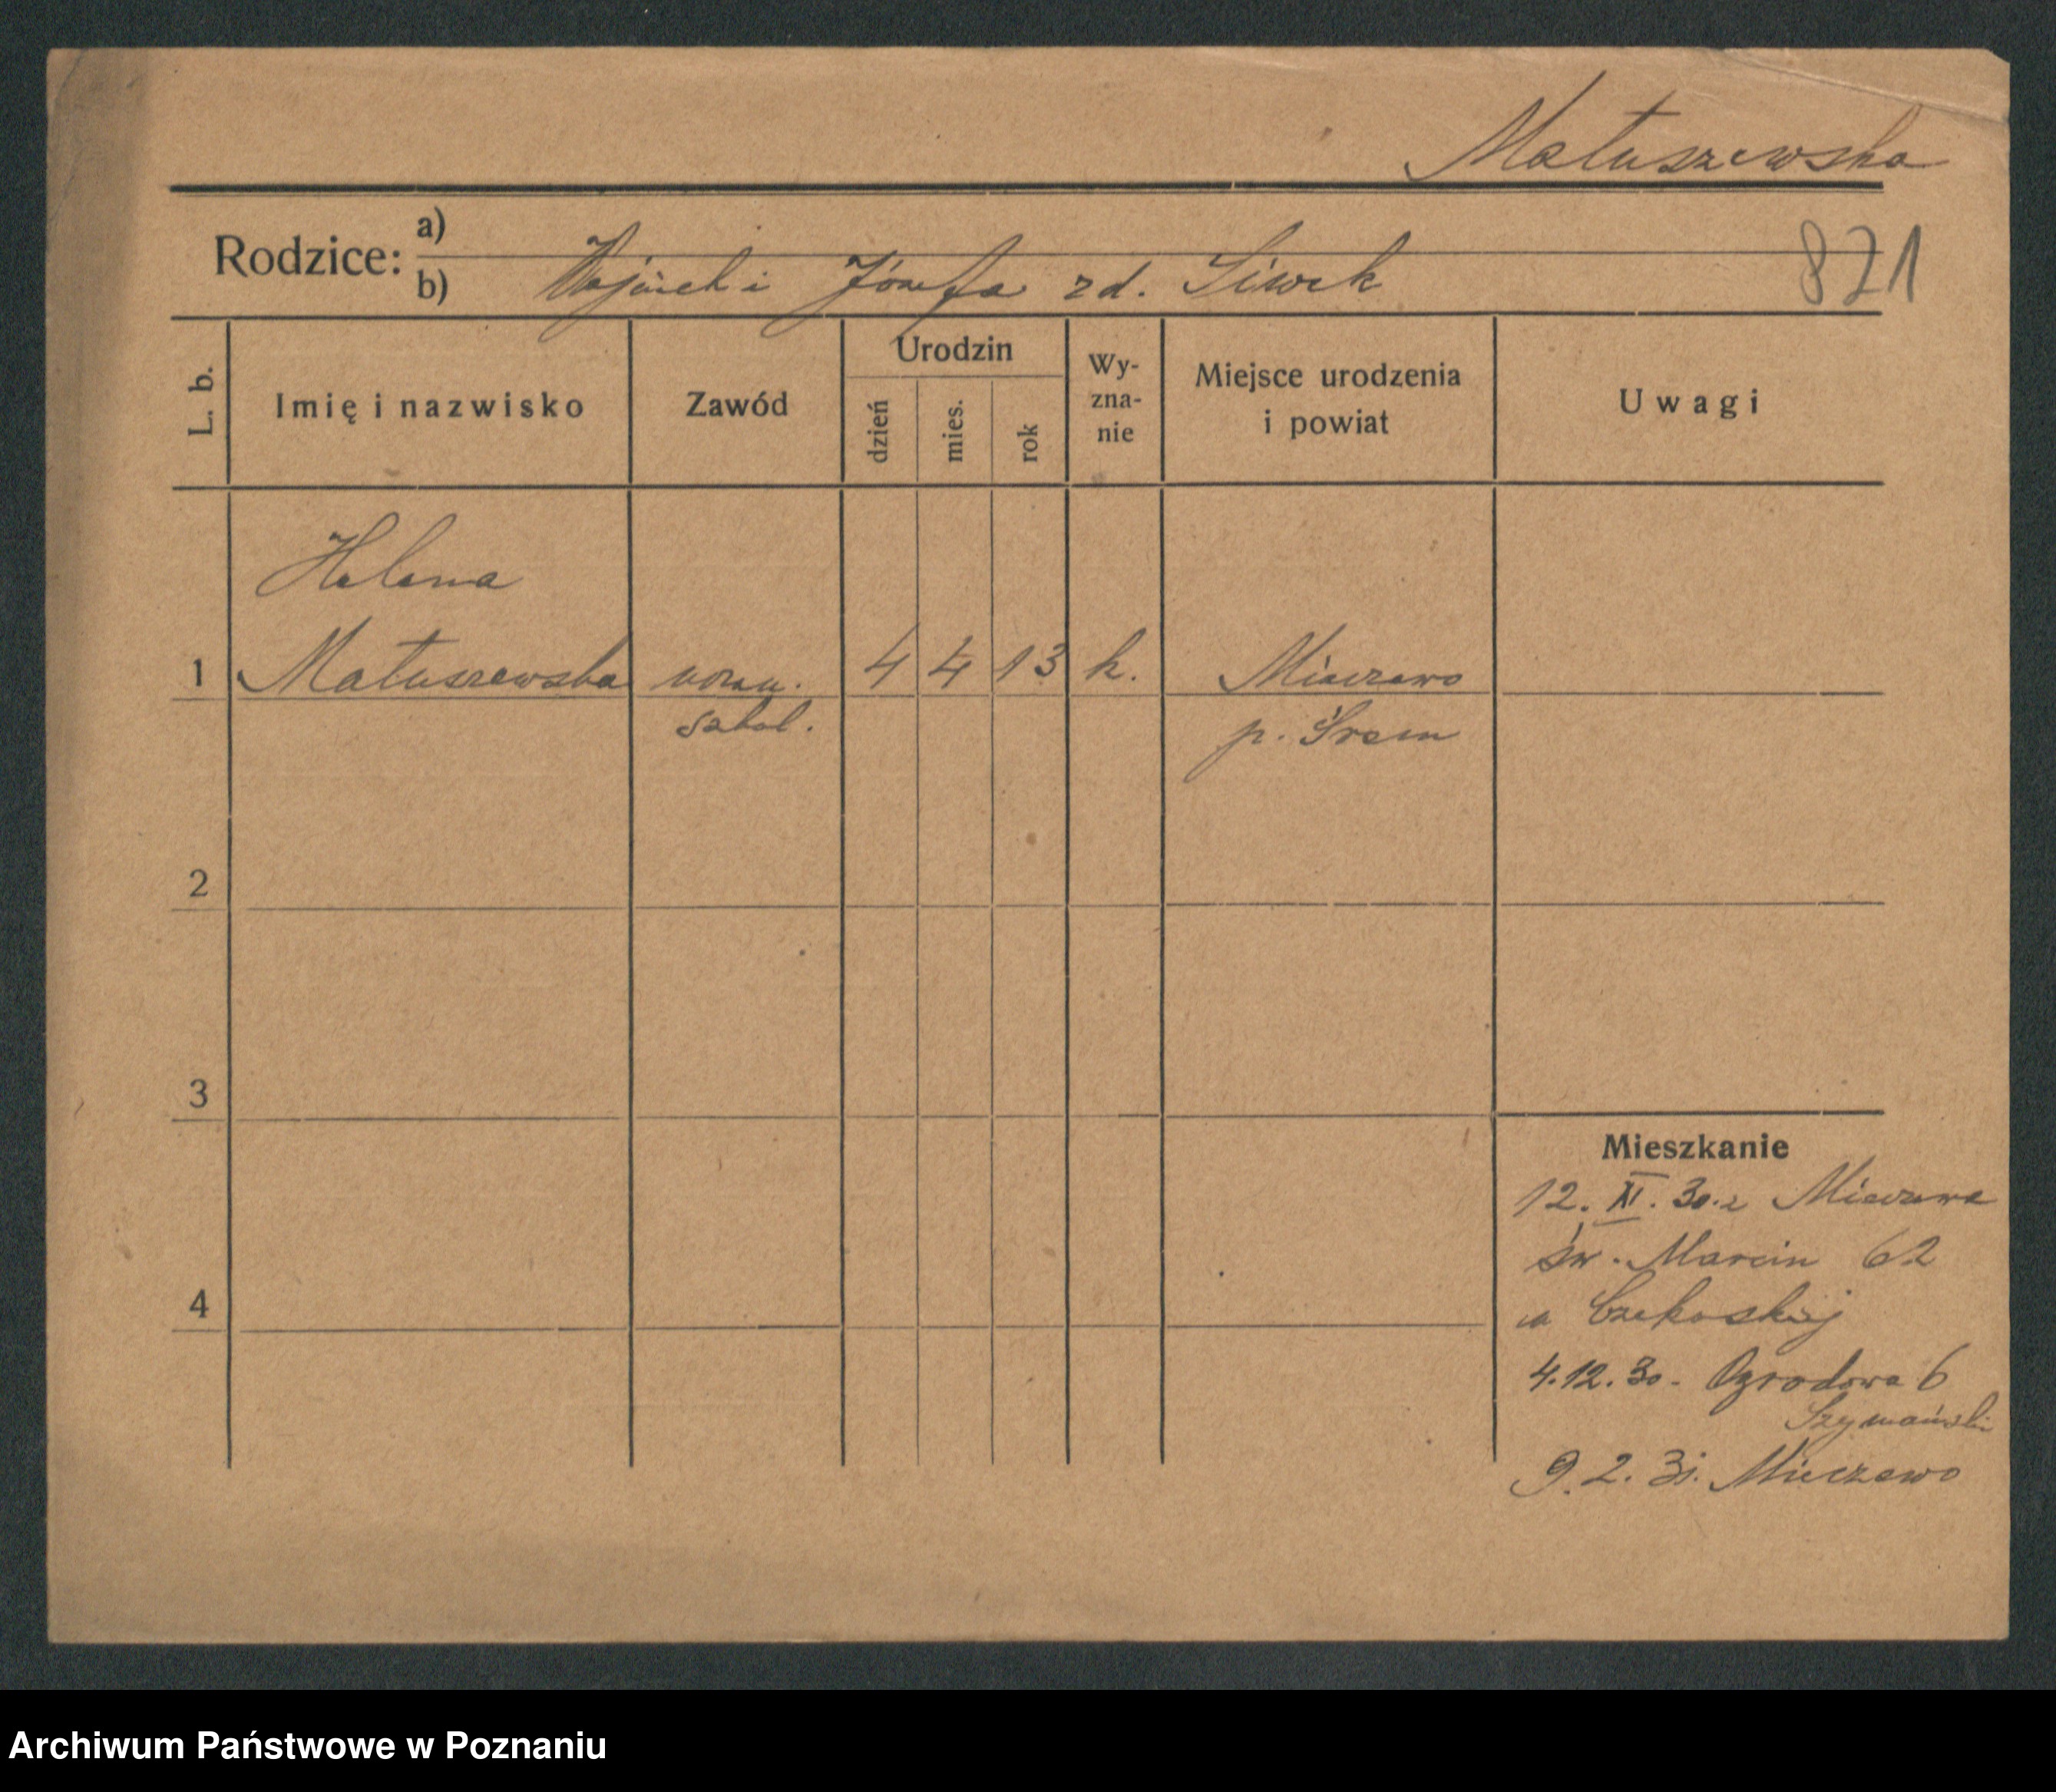 Matuszewska
Rodzice: a)
b) Wojciech i Józefa zd. Siwek
821
L. b.
Imię i nazwisko
Zawód
Urodzin
dzień
mies.
rok
Wy-
zna-
nie
Miejsce urodzenia
i powiat
Uwagi
Helena
1 Matuszewska uczen. 4 4 13 k. Mieczewo
szkol. p. Śrem
2
3
4
Mieszkanie
12. XI. 30. z Mieczewa
św. Marcin 62
u
4.12.30. Ogrodowa 6
Szymański
9.2.31. Mieczewo
Archiwum Państwowe w Poznaniu